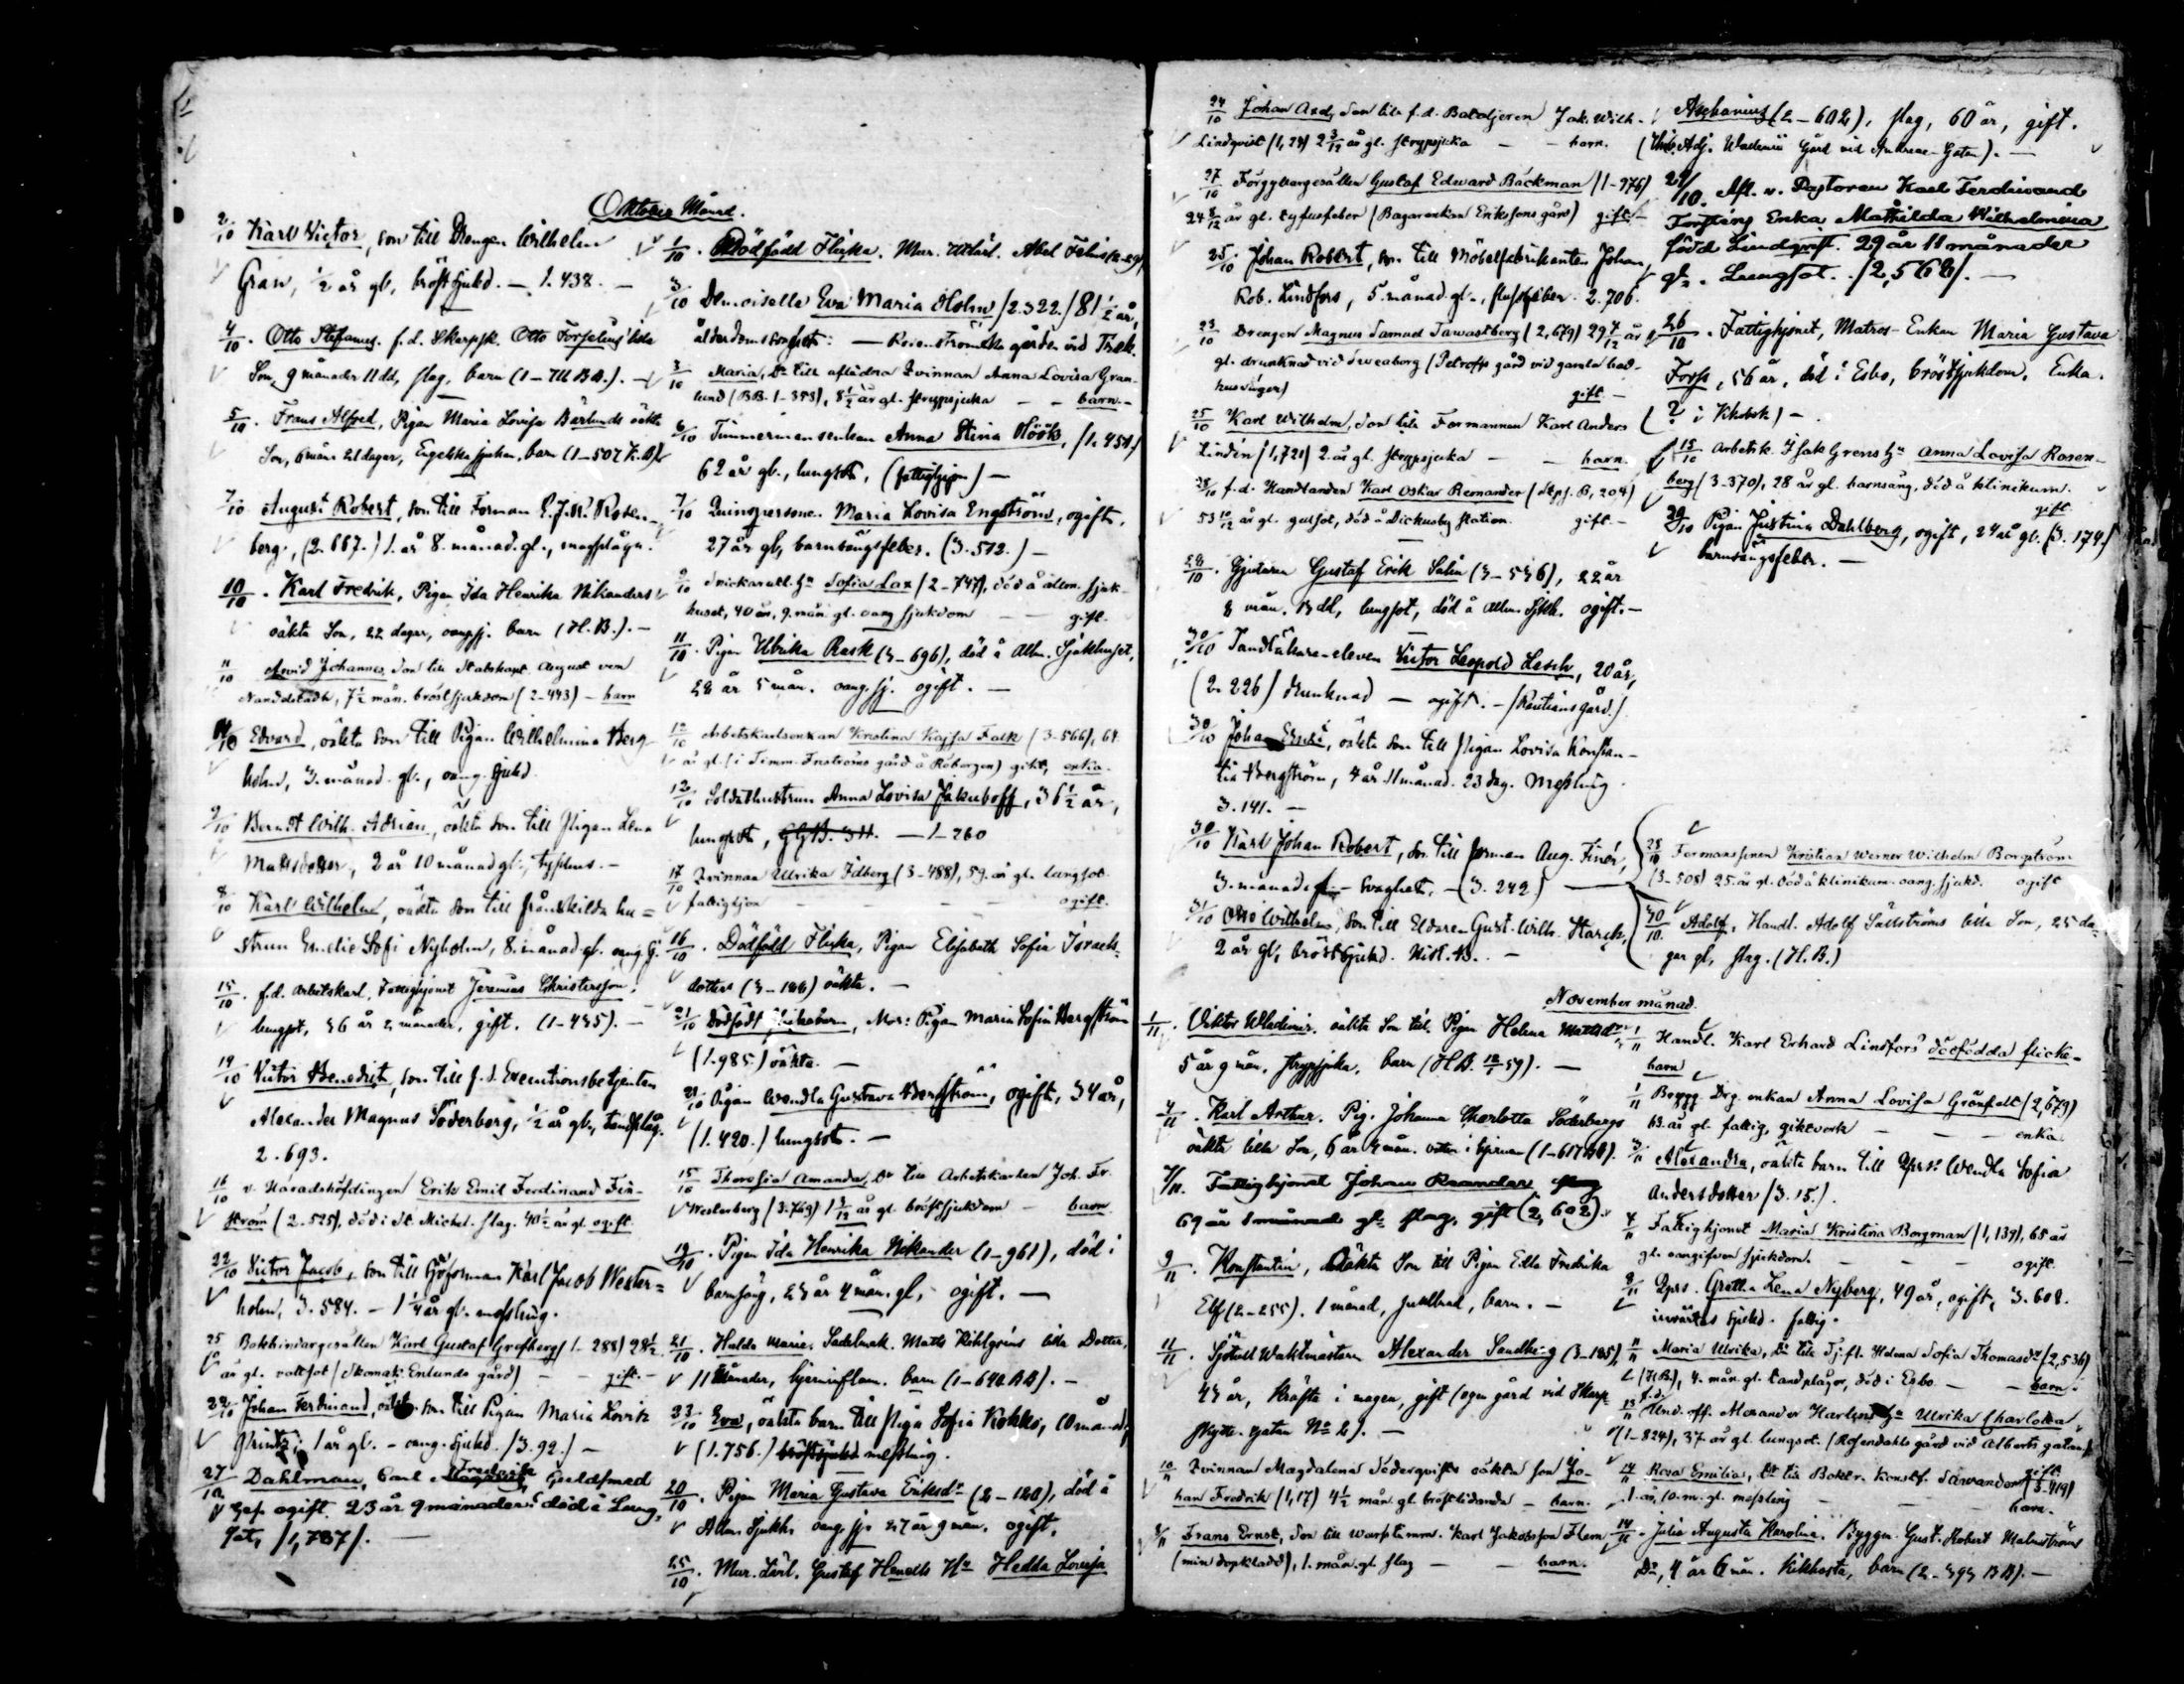 Oktober Månad.
2/10 Karl Victor, son till Drengen Wilhelm
Gran, 1/2 år gl, bröstsjukd. — 1.438. —
4/10. Otto Stefanus. f.d. Skarpsk. Otto Forselius' lilla
Son, 9 månader 11 dd, slag, barn (1–711 BB.). —
5/10. Frans Alfred, Pigan Maria Lovisa Bärlunds oäkta
Son, 6 mån. 21 dagar, Engelska sjukan, barn (1–507 H.B.)
7/10 August Robert, son till Forman E.J.N. Rosen-
berg, (2.667.) 1. år 8. månad. gl.,
10/10. Karl Fredrik, Pigan Ida Henrika Nikanders
oäkta Son, 22 dagar, oang. sj. barn (H.B.). —
11/10 Arvid Johannes, Son till Stabskapt. August von
Nandelstadh, 7 1/2 mån. bröstsjukdom (2–493) – barn
11/10 Edvard, oäkta son till Pigan Wilhelmina Berg-
holm, 3. månad. gl., oang. sjukd.
9/10 Berndt Wilh. Adrian, oäkta son till Pigan Lena
Mattsdotter, 2 år 10 månad gl., typhus. —
8/10 Karl Wilhelm, oäkta son till frånskilda hu=
strun Emelie Sofi Nyholm, 8. månad. gl. oang. sj.
15/10. f.d. Arbetskarl, Fattighjonet Jeremias Christersson,
lungsot, 36 år 2 månader, gift. (1–435). —
19/10 Victor Benedict, son till f.d. Executionsbetjenten
Alexander Magnus Söderberg, 1/2 år gl., tandplåg.
2.693.
16/10 v. Häradshöfdingen Erik Emil Ferdinand Fin-
ström (2–525), död i St. Michel. slag. 40 1/2 år gl. ogift.
22/10 Victor Jacob, son till Forman Karl Jacob Wester=
holm, 3.584. – 1 1/4 år gl. messling.
25 Bokbindaregesällen Karl Gustaf Grefberg (1–288) 28 1/2
år gl. rottsot (Skomak. Enlunds gård) — — gift. –
22/10 Johan Ferdinand, oäkta son till Pigan Maria Lovisa
1 år gl. – oang. sjukd. (3.92.) –
27/10 Dahlman, Carl Fredrik Guldsmed
Ges. ogift. 23 år 9 månader. död i Lung-
sot, /1,787/. —
1/10. Dödfödd Flicka. Mur. Abel (2–29)
3/10 Demoiselle Eva Maria Holm /2.322./ 81 1/2 år,
ålderdomssvaghet: — gården vid
3/10 Maria, Dr till aflidna Qvinnan Anna Lovisa Gran-
lund (BB. 1–353), 5 1/2 år gl. strypsjuka — — barn. –
6/10 Timmermansenkan Anna Stina Höök, (1.454)
62 år gl., lungsot, (fattighjon) —
7/10 Qvinsperson. Maria Lovisa Engström, ogift.
27 år gl, barnsängsfeber. (3.512.) —
9/10 Snickareål. Hu Sofia Lax (2–747), död å allm. sjuk-
huset, 40 år, 9. mån. gl. oang. sjukdom — — gift.
11/10. Pigan Ulrika Rask (3–696), död å Allm. Sjukhuset,
28 år 5 mån. oang. sj. ogift. —
12/10 Arbetskarlsenkan Kristina Kajsa Falk (3–566), 64
år gl. (i Timm. Enströms gård å Röbergen) gikt, enka.
12/10 Soldathustrun Anna Lovisa Jakuboff, 36 1/2 år,
lungsot, — 1–260
17/10 Qvinnan Ulrika Idberg (3–488), 59. år gl. lungsot
fattighjon — — — ogift.
16/10. Dödfödd Flicka, Pigan Elisabeth Sofia Israels-
dotters (3–188) oäkta. —
21/10 Dödfödt flickebarn, Mor: Pigan Maria Sofia Bergström
(1.985.) oäkta. —
21/10 Pigan Wendla Gustava Bergström, ogift, 34 år,
(1.420.) lungsot. —
15/10 Thorosia Amanda, Dr till Arbetskarlen Joh. Fr.
Westerberg (3.769) 1 9/12 år gl. bröstsjukdom — barn.
19/10. Pigan Ida Henrika Nikander (1–961), död i
barnsäng, 23 år 4 mån. gl, – ogift. —
21/10. Hulda Maria. Sadelmak. Matts Kihlgréns lilla Dotter,
11 Månader, hjerninflam. barn (1–640 BB). –
23/10 Eva, oäkta barn till Piga Sofia Kokko, 10 månad,
(1.756.) messling.
20/10. Pigan Maria Gustava Eriksdr (2–180), död å
Allm. Sjukh. oang. sj. 27 år 9 mån. ogift.
25/10. Mur. Lärl. Gustaf Hu Hedda Lovisa
24/10 Johan Axel, son till f.d. Bataljeren Jak. Wilh.
Lindqvist (1,29) 2 3/12 år gl. strypsjuka — — barn.
27/10 Färggaregesällen Gustaf Edward Bäckman (1–976)
24 8/12 år gl. tyfusfeber (Bagarenkan Erikssons gård) gift –
25/10. Johan Robert, son till Möbelfabrikanten Johan
Rob. Lindfors, 5. månad. gl., slussfeber. 2.706.
23/10 Drengen Magnus Samuel Tawastberg (2,679) 29 7/12 år
gl. drunknad vid Sveaborg (Petroffs gård vid gamla bad-
husvägen) gift –
25/10 Karl Wilhelm, Son till Formannen Karl Anders
Lindén (1,721) 2. år gl. strypsjuka — — barn.
28/10 f.d. Handlanden Karl Oskar Remander (Skpf. B, 204)
53 10/12 år gl. gulsot, död å Dickursby station. gift –
28/10. Gjutaren Gustaf Erik Salin (3–536), 22 år
8 mån. 13 dd, lungsot, död å Allm. Sjkh. ogift. —
30/10 Tandläkare-eleven Victor Leopold Lesch, 20 år,
(2.226) drunknad — ogift. – (Rautians gård.)
30/10 Johan, oäkta son till Pigan Lovisa Konstan-
tia Bergström, 4 år 11 månad. 23 dag. Messling.
3.141. —
30/10 Karl Johan Robert, son till forman Aug. Finér,
3. månad gl. – Svaghet. — (3.242.) —
31/10 Otto Wilhelm, son till Eldaren Gust. Wilh. Starck,
2 år gl, bröstsjukd. Nikl. B. —
Aschanius (2–602), slag, 60 år, gift.
(Adj. Wadenii Gård vid Andreæ-Gatan). —
29/10. Afl. v. Pastoren Karl Ferdinand
Forsténs Enka Mathilda Wilhelmina
född Lindqvist. 29 år 11 månader
gl. Lungsot. /2,562/. —
26/10. Fattighjonet, Matros-Enkan Maria Gustava
Forss, 56 år, död i Esbo, bröstsjukdom. Enka.
(? i Kbok) –
15/10 Arbetsk. Isak Grens Hu Anna Lovisa Rosen-
berg (3–370), 28 år gl. barnsäng, död å klinikum.
gift
29/10 Pigan Justina Dahlberg, ogift, 24 år gl. (3.174)
barnsängsfeber. —
28/10 Formanssonen Kristian Werner Wilhelm Borgström
(3–508) 25. år gl. död å klinikum. oang. sjukd. ogift
30/10. Adolf, Handl. Adolf Sällströms lilla Son, 25 da-
gar gl, slag. (H.B.)
November månad.
1/11. Viktor Wladimir. oäkta Son till Pigan Helena Mattsdr
5 år 9 mån. strypsjuka, barn (H.B. 59). —
4/11. Karl Arthur. Pig. Johanna Charlotta Söderbergs
oäkta lilla Son, 6 år 4 mån. vatten i hjernan (1–617 BB).
7/11. Fattighjonet Johan Reander slag
69 år 1 månad gl. slag, gift (2,602).
9/11. Konstantin, Oäkta Son till Pigan Edla Fredrika
Elf (2–255). 1 månad, barn. —
11/11. Sjötull Waktmästaren Alexander Sandberg (3–185),
43 år, Kräfta i magen, gift (egen gård vid Skarp-
skytte-gatan No 2). —
10/11 Qvinnan Magdalena Söderqvists oäkta son Jo-
han Fredrik (1,17) 4 1/2 mån. gl. bröstlidande – barn.
8/11 Frans Ernst, Son till warfstimm. Karl Jakobsson Flem
(min. dopkladd), 1. mån. gl. slag — — barn.
1/11 Handl. Karl Erhard Lindfors' dödfödda flicke-
barn
1/11 Brygg. Drg. enkan Anna Lovisa Grönfelt (2,679)
63. år gl. fattig, giktverk — — — enka
3/11 Alexandra, oäkta barn till Qprs: Wendla Sofia
Andersdotter (3.15.).
4/11 Fattighjonet Maria Kristina Borgman (1,139), 65 år
gl. oangifven sjukdom. — — — ogift.
8/11 Qprs. Gretha Lena Nyberg, 49 år, ogift, 3.608.
invärtes sjukd. fattig.
11/11 Maria Ulrika, Dr till Tj.fl. Helena Sofia Thomasdr (2,536)
(H.B.), 4. mån. gl. tandplågor, död i Esbo — — barn.
13/11 f.d. Und. off. Alexander Karlens Hu Ulrika Charlotta
(1–824), 37 år gl. lungsot. (Rosendahls gård vid Albertsgatan)
gift
14/11 Rosa Emilia, Dr till Boktr. Konstf. Sawander (3–419)
1. år, 10. m. gl. messling — — barn.
14/11. Julia Augusta Karolina. Byggm. Gust. Robert Malmströms
Dr, 4 år 6 mån. Kikhosta, barn (2–393 BB). —